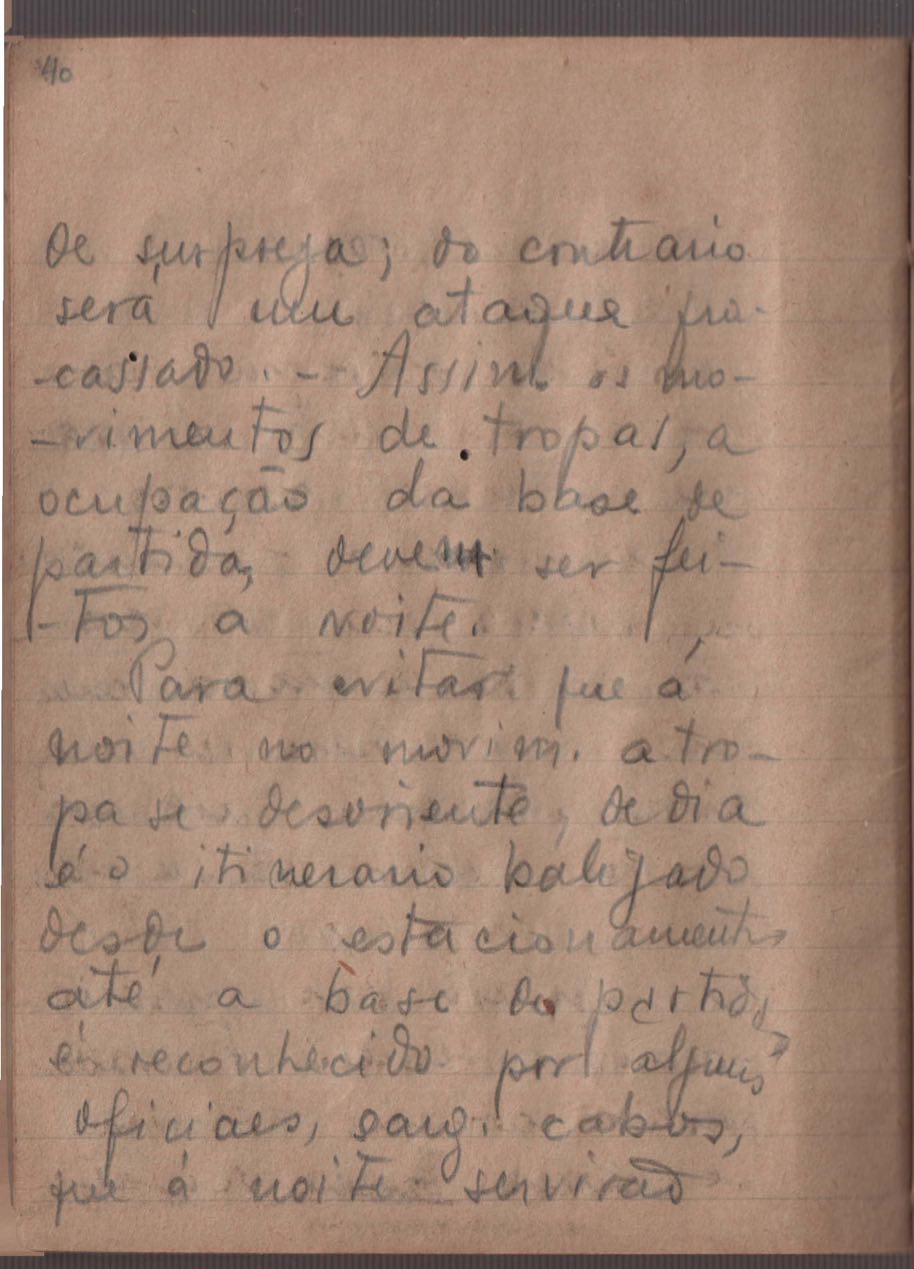 40
de surpreza; do contrario
será um ataque fra-
-cassado. - Assim os mo-
-vimentos de tropas, a
ocupação da base de
partida, devem ser fei-
-tos a noite.
Para evitar que á
noite no movim. a tro-
pa se desoriente, de dia
é o itinerario balizado
desde o estacionamento
até a base de partida,
é reconhecido por alguns
oficiaes, sarg. cabos,
que á noite servirão